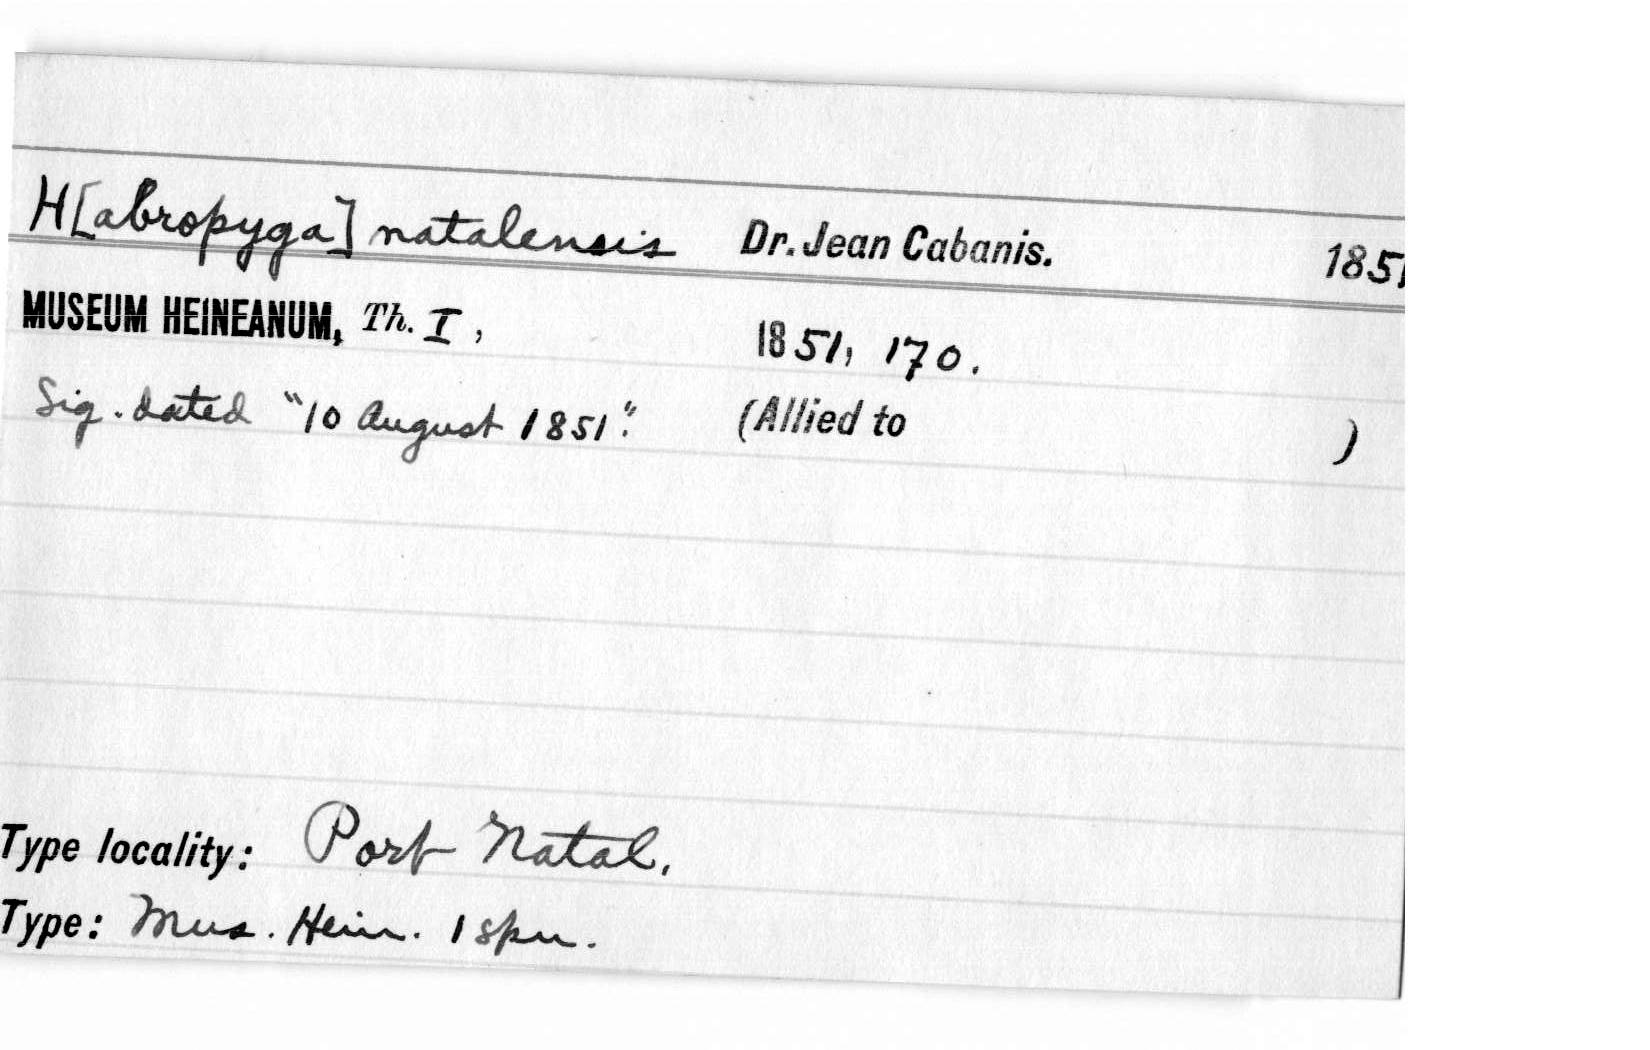 H[abropyga] natalensis Dr. Jean Cabanis. 1851
MUSEUM HEINEANUM, Th. I, 1851, 170.
Sig. dated "10 August 1851". (Allied to )
Type locality: Port Natal.
Type: Mus. Hein. 1 spm.